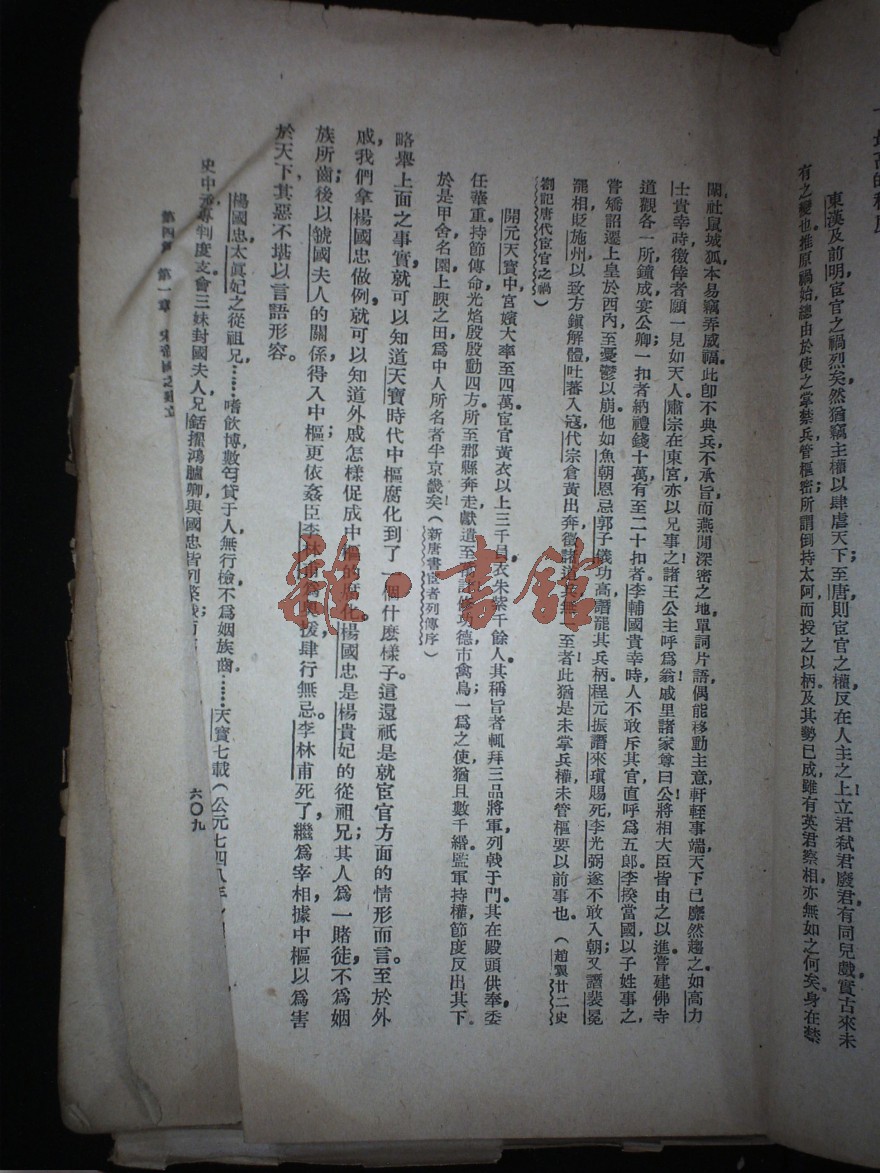 東漢及前明宦官之禍烈矣，然猶竊主權以肆虐天下；至唐則宦官之權反在人主之上，立君弒君廢君，有同兒戲，實古來未
有之變也。推原禍始，總由於使之掌禁兵，管樞密；所謂倒持太阿而授之以柄，及其勢已成，雖有英君察相，亦無如之何矣。身在禁
闈，社鼠城狐，本易竊弄威福。此即不典兵，不承旨，而燕閒深密之地，單詞片語，偶能移動主意，軒輊事端，天下已靡然趨之。如高力
士貴幸時，徼倖者願一見如天人；肅宗在東宮，亦以兄事之；諸王公主呼爲翁，戚里諸家尊曰公，將相大臣皆由之以進；嘗建佛寺
道觀各一所，鐘成，宴公卿，一扣者納禮錢十萬，有至二十扣者。李輔國貴幸時，人不敢斥其官，直呼爲五郎，李揆當國，以子姓事之，
嘗矯詔遷上皇於西內，至憂鬱以崩。他如魚朝恩忌郭子儀功高，譖罷其兵柄；程元振譖來瑱賜死，李光弼遂不敢入朝；又譖裴冕
罷相，貶施州；以致方鎮解體，吐蕃入寇，代宗倉黃出奔，徵諸道兵，無 至者。此猶是未掌兵權，未管樞要以前事也。（趙翼廿二史
劄記唐代宦官之禍）
開元天寶中，宮嬪大率至四萬，宦官黃衣以上三千員，衣朱紫千餘人。其稱旨者輒拜三品將軍，列戟于門。其在殿頭供奉，委
任華重，持節傳命，光焰殷殷動四方。所至郡縣奔走，獻遺至萬計。修功德，市禽鳥，一爲之使，猶且數千緡。監軍持權，節度反出其下。
於是甲舍名園，上腴之田，爲中人所名者半京畿矣！（新唐書宦者列傳序）
略舉上面之事實，就可以知道天寶時代中樞腐化到了一個什麽樣子。這還祇是就宦官方面的情形而言。至於外
戚，我們拿楊國忠做例，就可以知道外戚怎樣促成中樞的腐化。楊國忠是楊貴妃的從祖兄；其人爲一賭徒，不爲姻
族所齒；後以虢國夫人的關係，得入中樞；更依姦臣李林甫爲奧援，肆行無忌。李林甫死了，繼爲宰相，據中樞以爲害
於天下，其惡不堪以言語形容。
楊國忠，太眞妃之從祖兄，……嗜飲博，數匄貸于人，無行檢，不爲姻族齒，……天寶七載（公元七四八年
史中 專判度支。會三妹封國夫人，兄銛擢鴻臚卿，與國忠皆列棨戟
第四 第一章
六〇九